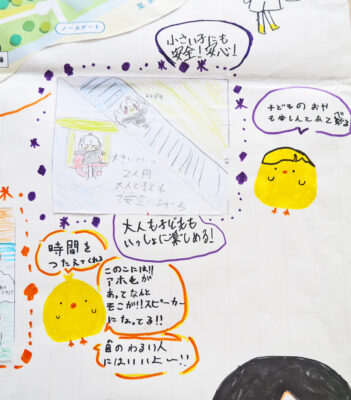 ノースゲート
小さい子にも
安全!安心!
子どものおや
も楽しんであそ
大人も子どもも
いっしょに楽しめる!
2人用
大人と子ども
で安全に
時間を
つたえてくれる
このこには!!
アホ毛が
あってなんと
そこが!!スピーカー
になってる!!
目のわるい人
にはいいよ〜!!